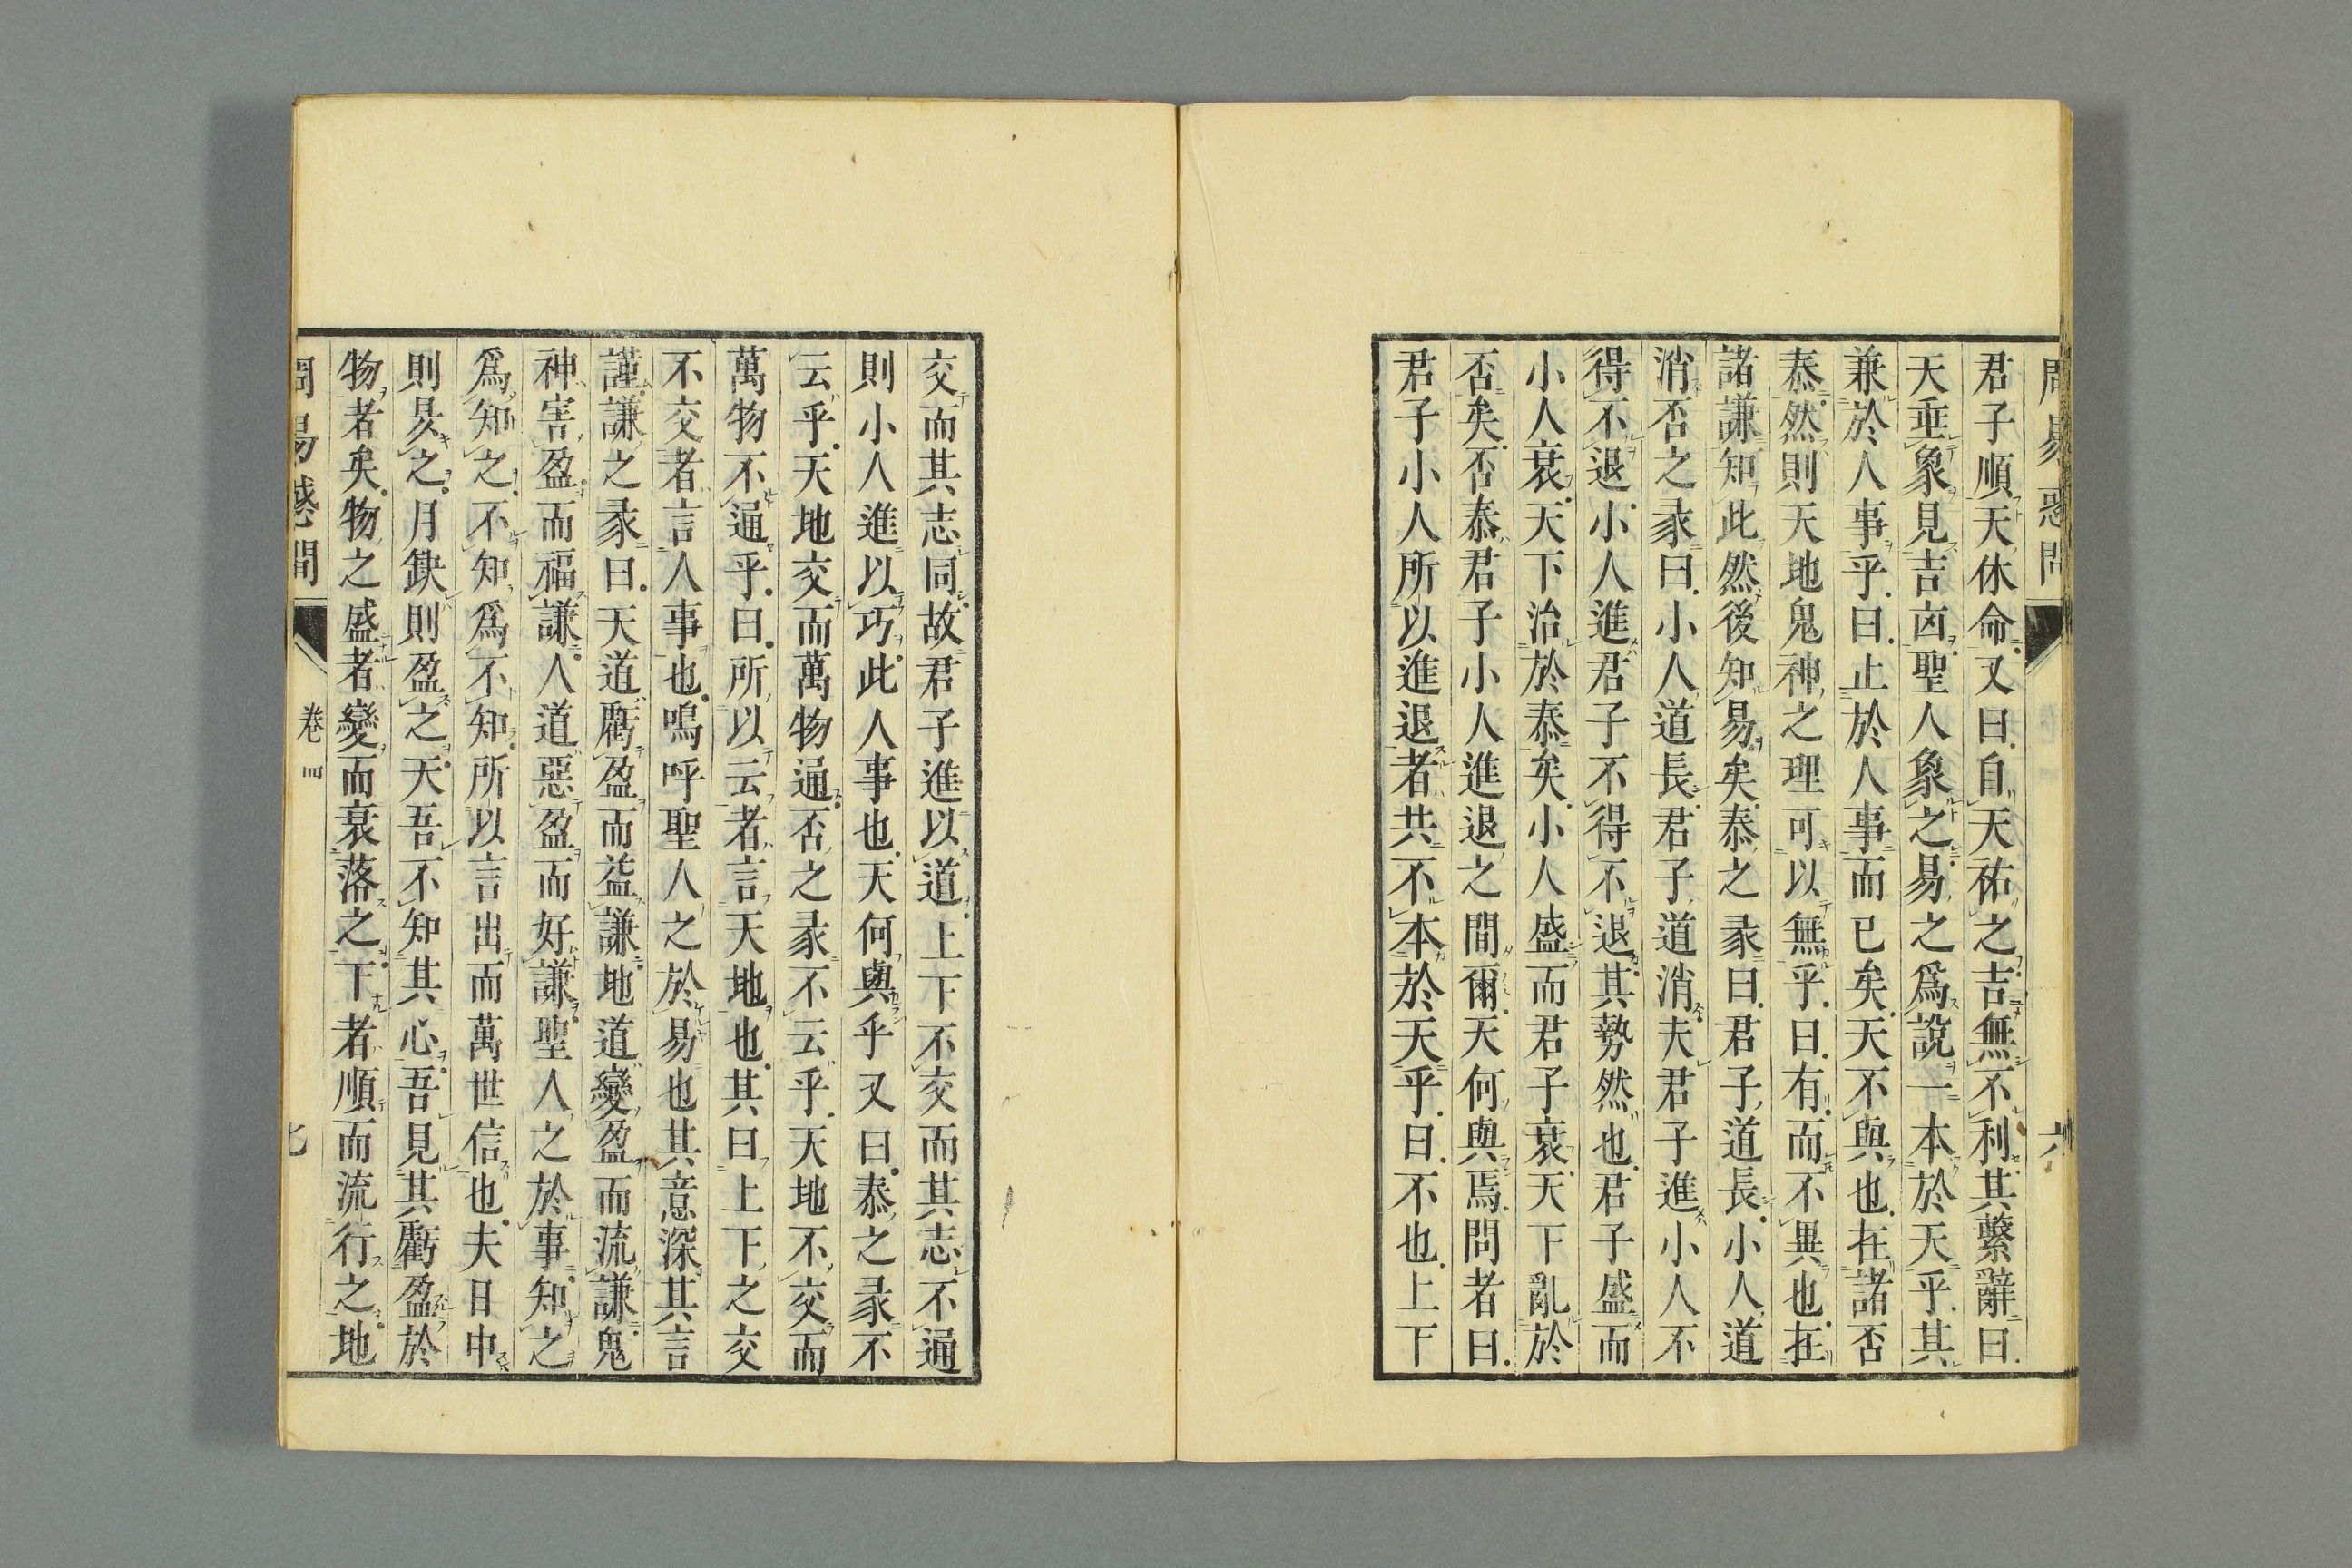 周易惑問　六
君子順天休命。又曰。自天祐之。吉無不利。其繫辭曰。
天垂象見吉凶。聖人象之。易之爲說一本於天乎。其
兼於人事乎。曰。止於人事而已矣。天不與也。在諸否
泰。然則天地鬼神之理可以無乎。曰。有而不異也。在
諸謙。知此然後知易矣。泰之彖曰。君子道長。小人道
消。否之彖曰。小人道長。君子道消。夫君子進小人不
得不退。小人進君子不得不退。其勢然也。君子盛而
小人衰。天下治於泰矣。小人盛而君子衰。天下亂於
否矣。否泰君子小人進退之間爾。天何與焉。問者曰。
君子小人所以進退者共不本於天乎。曰。不也。上下
交而其志同。故君子進以道。上下不交而其志不通
則小人進以巧。此人事也。天何與乎又曰。泰之彖不
云乎。天地交而萬物通。否之彖不云乎。天地不交而
萬物不通乎。曰。所以云者言天地也。其曰上下之交
不交者言人事也。嗚呼聖人之於易也其意深其言
謹。謙之彖曰。天道虧盈而益謙。地道變盈而流謙。鬼
神害盈而福謙。人道惡盈而好謙。聖人之於事。知之
爲知之。不知爲不知。所以言出而萬世信也。夫日中
則昃之。月缺則盈之。天吾不知其心。吾見其虧盈於
物者矣。物之盛者變而衰落之。下者順而流行之。地
周易惑問　卷四　七